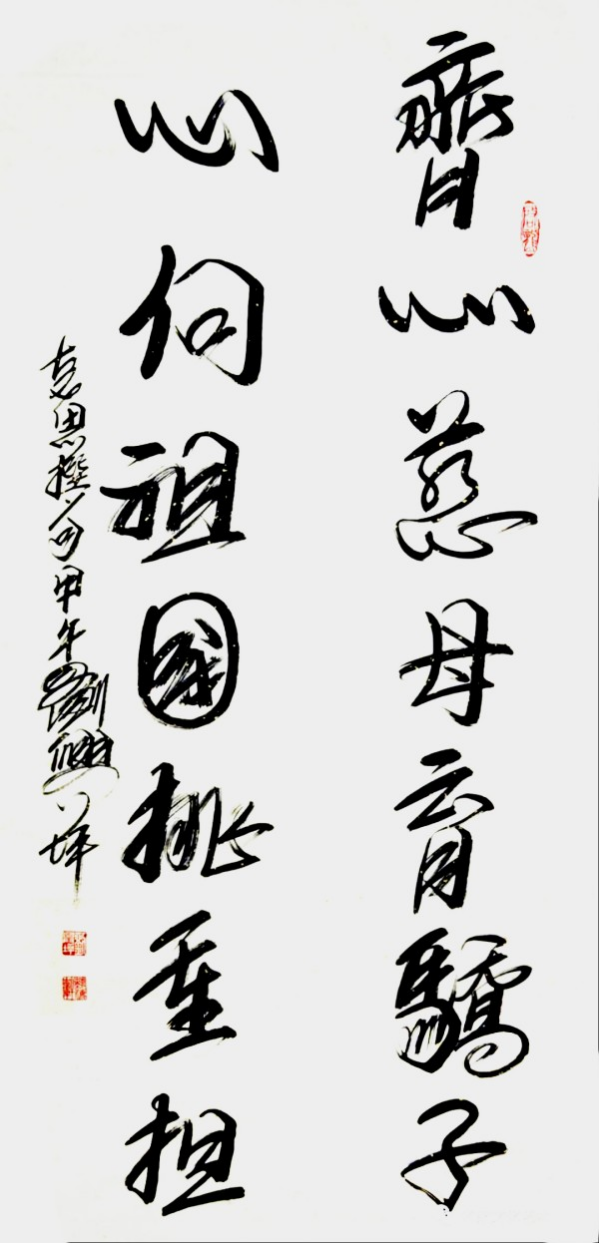 齊心慈母育驕子
心向祖國挑重担
思撰句甲午劉興